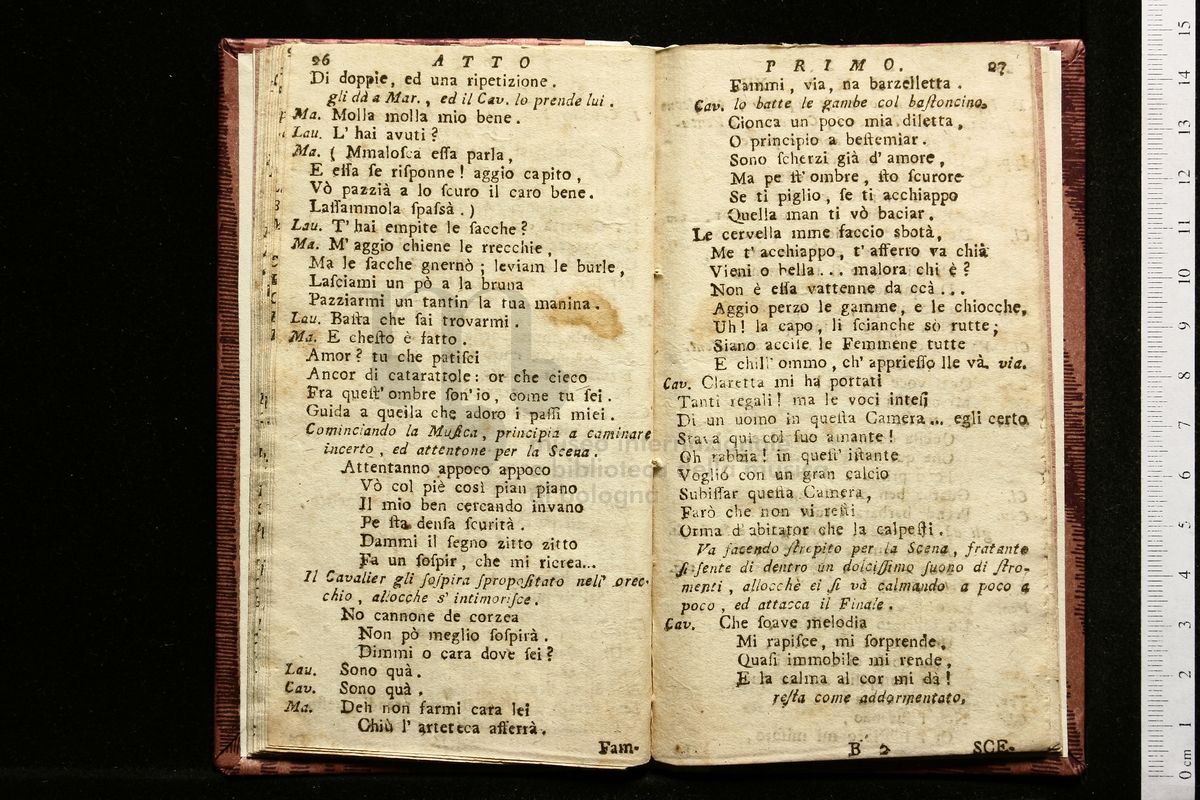 26 ATTO
Di doppie, ed una ripetizione.
gli dà a Mar., ed il Cav. lo prende lui.
Ma. Molla molla mio bene.
Lau. L' hai avuti?
Ma. ( Mmaloſca eſſa parla,
E eſſa ſe riſponne! aggio capito,
Vò pazzià a lo ſcuro il caro bene.
Laſſammola ſpaſsà.)
Lau. T' hai empite le ſacche?
Ma. M' aggio chiene le rrecchie,
Ma le ſacche gnernò; leviam le burle,
Laſciami un pò a la bruna
Pazziarmi un tantin la tua manina.
Lau. Baſta che ſai trovarmi.
Ma. E cheſto è fatto.
Amor? tu che patiſci
Ancor di catarattole: or che cieco
Fra queſt' ombre ſon' io, come tu ſei.
Guida a quella che adoro i paſſi miei.
Cominciando la Muſica, principia a caminare
incerto, ed attentone per la Scena.
Attentanno appoco appoco
Vò col piè così pian piano
Il mio ben cercando invano
Pe ſta denſa ſcurità.
Dammi il ſegno zitto zitto
Fa un ſoſpir, che mi ricrea...
Il Cavalier gli ſoſpira ſpropoſitato nell' orec-
chio, allocche s' intimoriſce.
No cannone de corzea
Non pò meglio ſoſpirà.
Dimmi o cara dove ſei?
Lau. Sono quà.
Cav. Sono quà.
Ma. Deh non farmi cara lei
Chiù l' arteteca afferrà.
Fam-
PRIMO. 27
Fammi, via, na barzelletta.
Cav. lo batte le gambe col baſtoncino.
Cionca un poco mia diletta,
O principio a beſtemiar.
Sono ſcherzi già d' amore,
Ma pe ſt' ombre, ſto ſcurore
Se ti piglio, ſe ti acchiappo
Quella man ti vò baciar.
Le cervella mme faccio sbotà,
Me t' acchiappo, t' afferro va chià
Vieni o bella... malora chi è?
Non è eſſa vattenne da ccà...
Aggio perzo le gamme, e le chiocche,
Uh! la capo, li ſcianche sò rutte;
Siano acciſe le Femmene tutte
E chill' ommo, ch' apprieſſo lle và. via.
Cav. Claretta mi ha portati
Tanti regali! ma le voci inteſi
Di un uomo in queſta Camera... egli certo
Stava quì col ſuo amante!
Oh rabbia! in queſt' iſtante
Voglio con un gran calcio
Subiſſar queſta Camera,
Farò che non vi reſti
Orma d' abitator che la calpeſti.
Va facendo ſtrepito per la Scena, fratanto
ſi ſente di dentro un dolciſſimo ſuono di ſtro-
menti, allocchè ei ſi và calmando a poco a
poco, ed attacca il Finale.
Cav. Che ſoave melodia
Mi rapiſce, mi ſorprende,
Quaſi immobile mi rende,
E la calma al cor mi dà!
reſta come addormentato.
B 2 SCE-
museo internazionale
biblioteca della musica
di bologna
15
14
13
12
11
10
9
8
7
6
5
4
3
2
1
0 cm